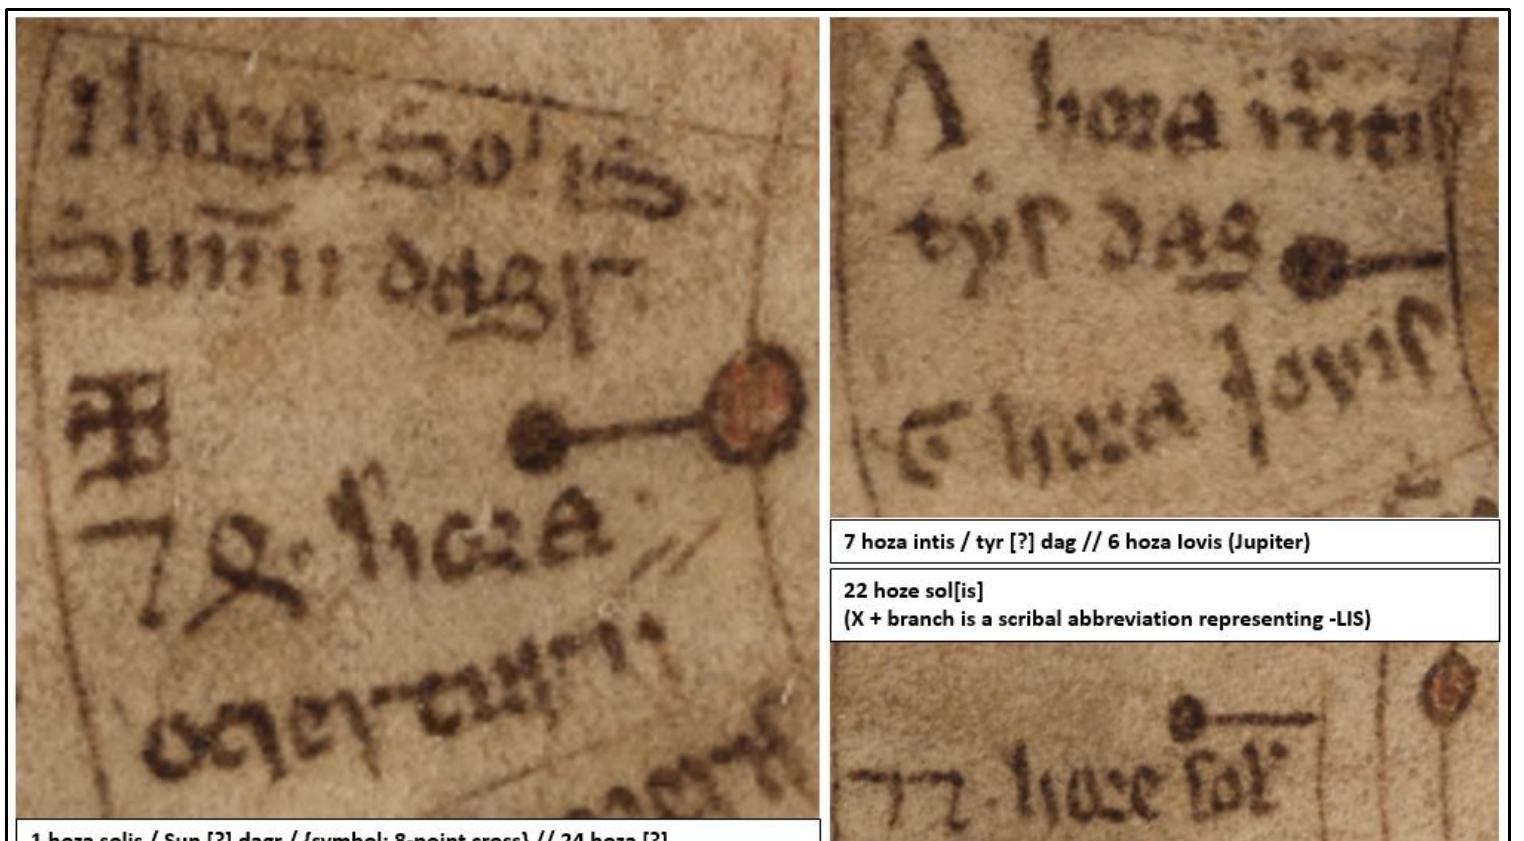 1 hora solis
sunnu dagr
hora
7 hora
tyrs dag
6 hora Jovis
7 hoza intis / tyr [?] dag // 6 hoza Iovis (Jupiter)
22 hoze sol[is]
(X + branch is a scribal abbreviation representing -LIS)
22 hore sol
1 hoza solis / Sun [?] dagr / {symbol: 8-point cross} // 24 hoza [?]